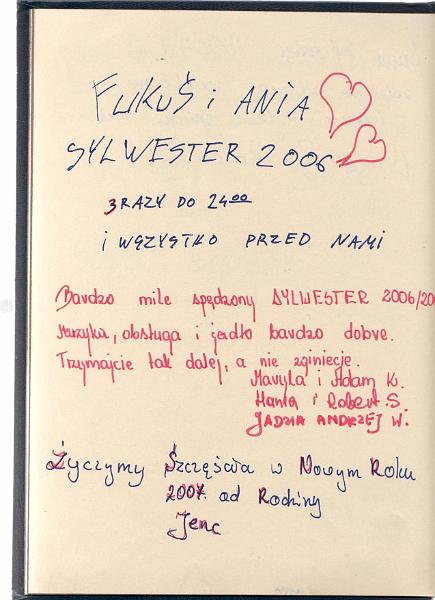 FUKUŚ i ANIA
SYLWESTER 2006
3 RAZY DO 24 00
i WSZYSTKO PRZED NAMI
Bardzo mile spędzony SYLWESTER 2006/200
Muzyka, obsługa i jadło bardzo dobre.
Trzymajcie tak dalej, a nie zginiecie.
Maryla i Adam K.
Hania i Robert S.
JADZIA ANDRZEJ W.
Życzymy Szczęścia w Nowym Roku
2007 od Rodziny
Jenc